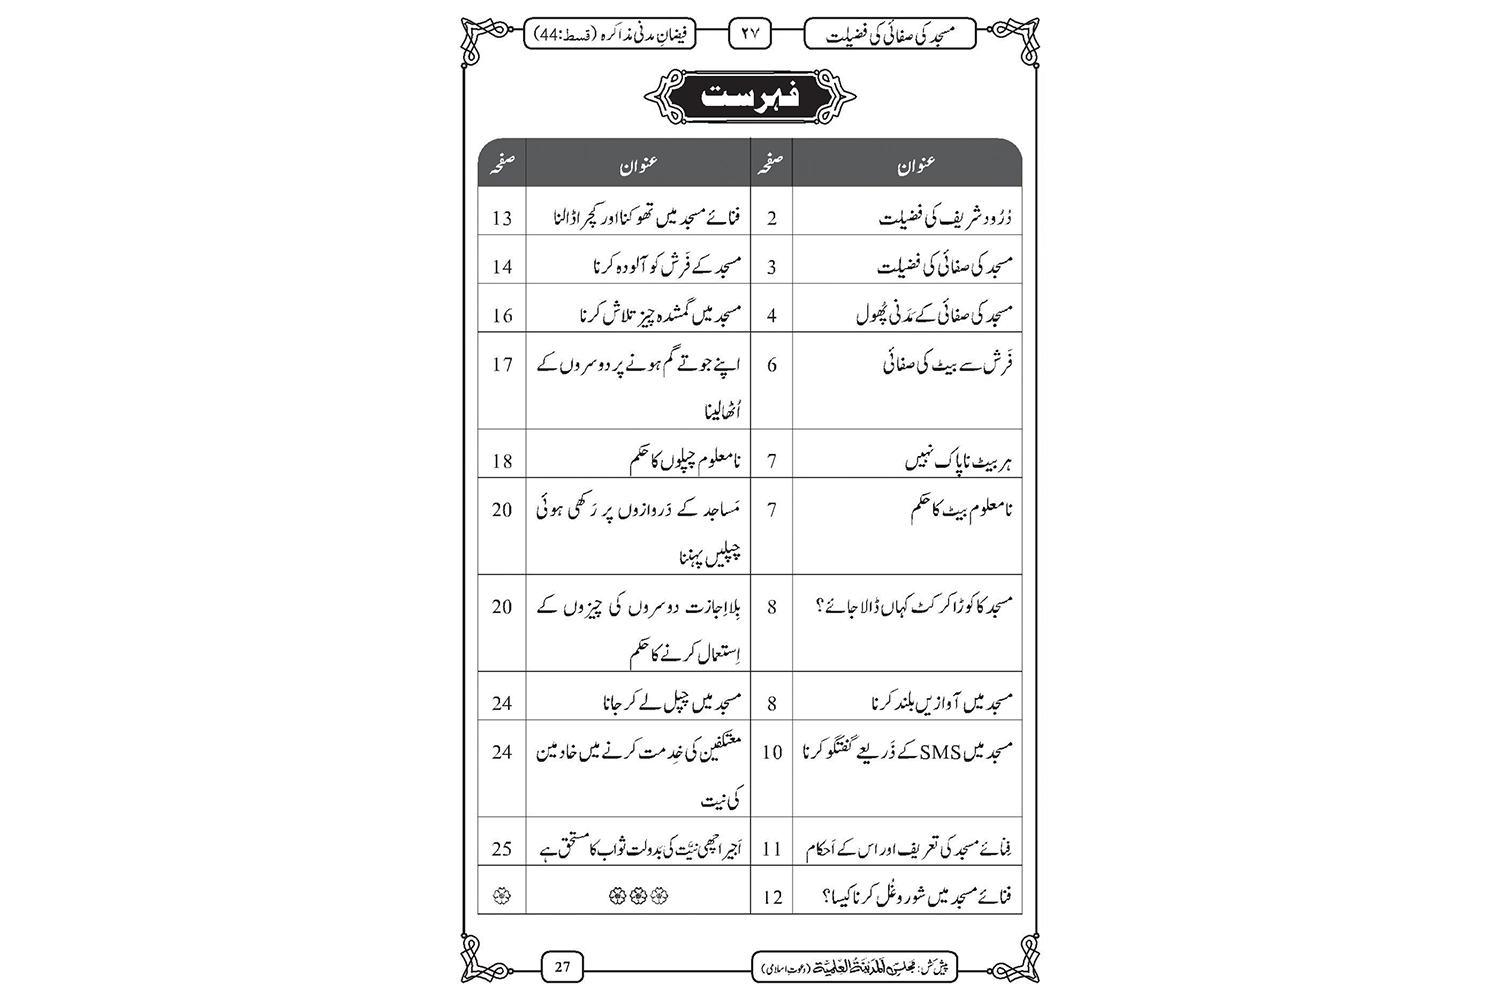 مسجد کی صفائی کی فضیلت
۲۷
فیضانِ مدنی مذاکرہ (قسط:44)
فہرست
عنوان صفحہ عنوان صفحہ
دُرُود شریف کی فضیلت 2 فنائے مسجد میں تھوکنا اور کچرا ڈالنا 13
مسجد کی صفائی کی فضیلت 3 مسجد کے فَرش کو آلودہ کرنا 14
مسجد کی صفائی کے مَدَنی پُھول 4 مسجد میں گمشدہ چیز تلاش کرنا 16
فَرش سے بیٹ کی صفائی 6 اپنے جوتے گم ہونے پر دوسروں کے 17
اُٹھا لینا
ہر بیٹ ناپاک نہیں 7 نامعلوم چپلوں کا حکم 18
نامعلوم بیٹ کا حکم 7 مَساجد کے دَروازوں پر رَکھی ہوئی 20
چپلیں پہننا
مسجد کا کوڑا کرکٹ کہاں ڈالا جائے؟ 8 بِلا اِجازت دوسروں کی چیزوں کے 20
اِستعمال کرنے کا حکم
مسجد میں آوازیں بلند کرنا 8 مسجد میں چپل لے کر جانا 24
مسجد میں SMS کے ذَریعے گفتگو کرنا 10 معتکفین کی خِدمت کرنے میں خادمین 24
کی نیت
فِنائے مسجد کی تعریف اور اس کے اَحکام 11 اَجیر اچھی نیَّت کی بَدولت ثواب کا مستحق ہے 25
فنائے مسجد میں شور و غُل کرنا کیسا؟ 12
پیش کش: مجلس المدینۃ العلمیۃ (دعوتِ اسلامی)
27